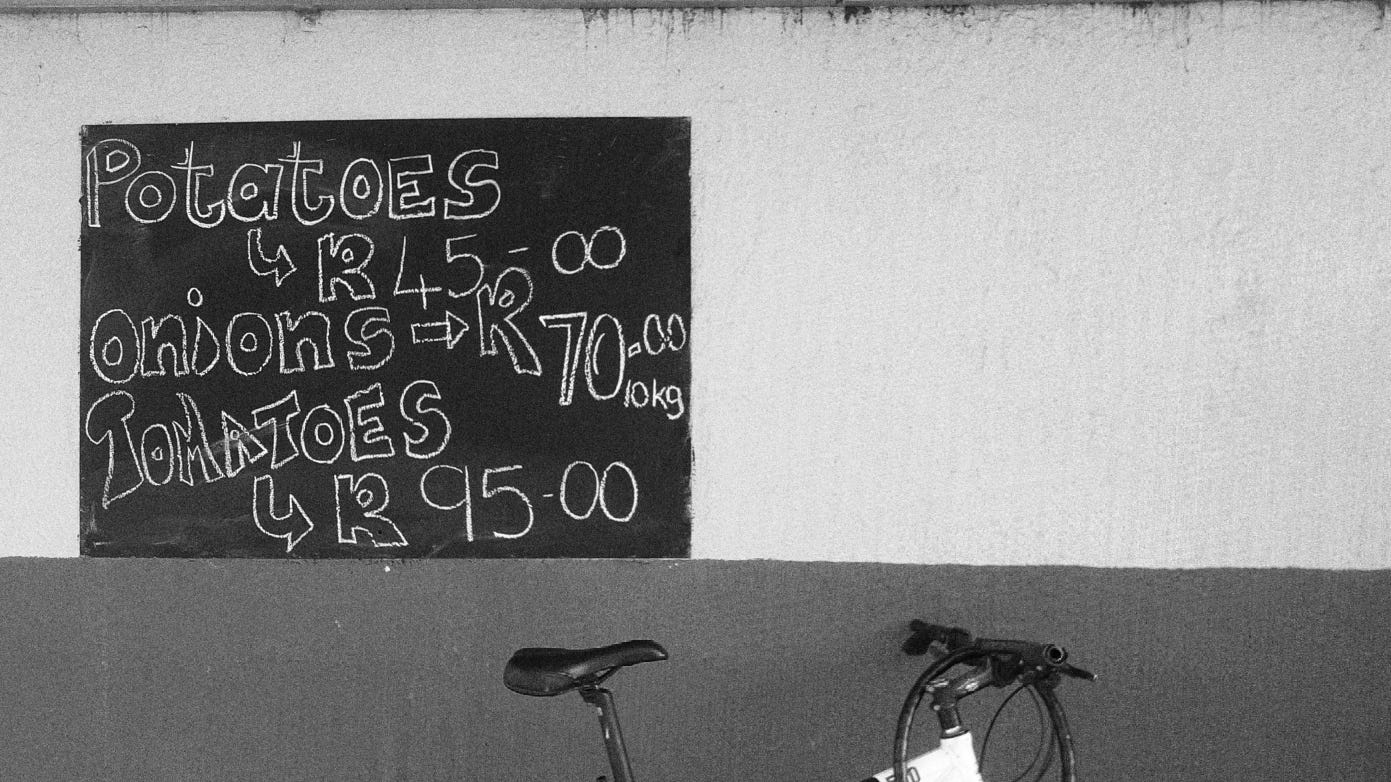 Potatoes
↳ R 45-00
Onions ⇒ R 70.00
10kg
TOMATOES
↳ R 95-00